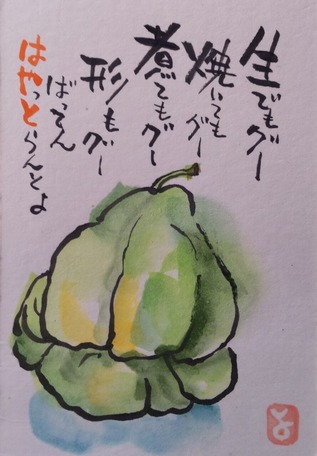 生でもグー
焼いてもグー
煮てもグー
形もグー
ばってん
はやっとらんとよ